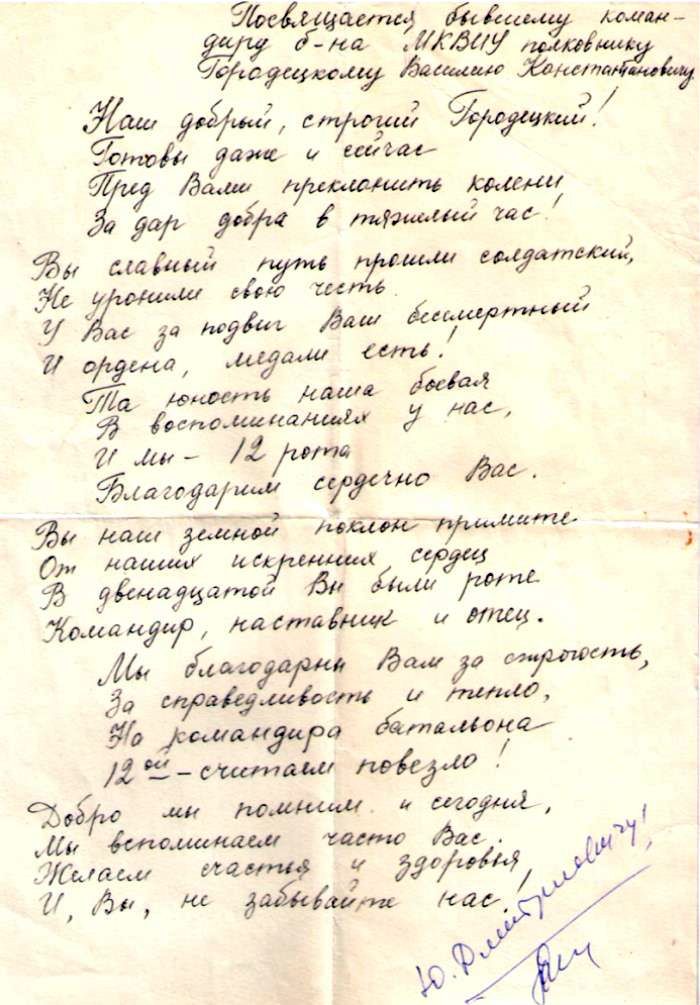 Посвящается бывшему коман-
диру б-на МКВИУ полковнику
Городецкому Василию Константиновичу
Наш добрый, строгий Городецкий!
Готовы даже и сейчас
Пред Вами преклонить колени
За дар добра в тяжелый час!
Вы славный путь прошли солдатский,
Не уронили свою честь.
У Вас за подвиг Ваш бессмертный
И ордена, медали есть!
Та юность наша боевая
В воспоминаниях у нас,
И мы - 12 рота
Благодарим сердечно Вас.
Вы наш земной поклон примите
От наших искренних сердец
В двенадцатой Вы были роте
Командир, наставник и отец.
Мы благодарны Вам за строгость,
За справедливость и тепло,
На командира батальона
12ой - считаем повезло!
Добро мы помним и сегодня,
Мы вспоминаем часто Вас.
Желаем счастья и здоровья,
И, Вы, не забывайте нас!
Ю. Дмитриевичу!